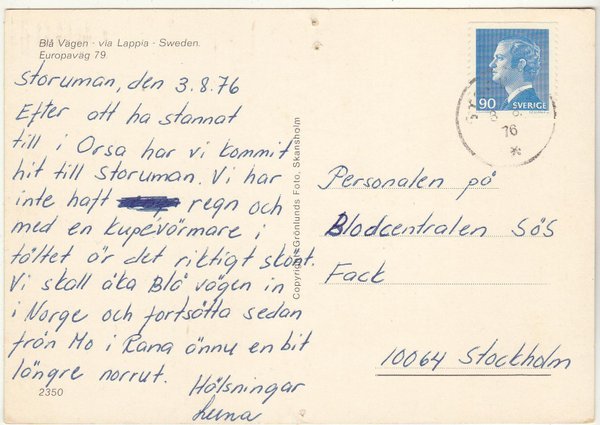 Blå Vägen · via Lappia · Sweden.
Europaväg 79.
Storuman, den 3.8.76
Efter att ha stannat
till i Orsa har vi kommit
hit till Storuman. Vi har
inte haft regn och
med en kupévärmare i
tältet är det riktigt skönt.
Vi skall åka Blå vägen in
i Norge och fortsätta sedan
från Mo i Rana ännu en bit
längre norrut.
Hälsningar
2350
Copyright: Grönlunds Foto, Skansholm
90 SVERIGE
76
Personalen på
Blodcentralen SöS
Fack
10064 Stockholm